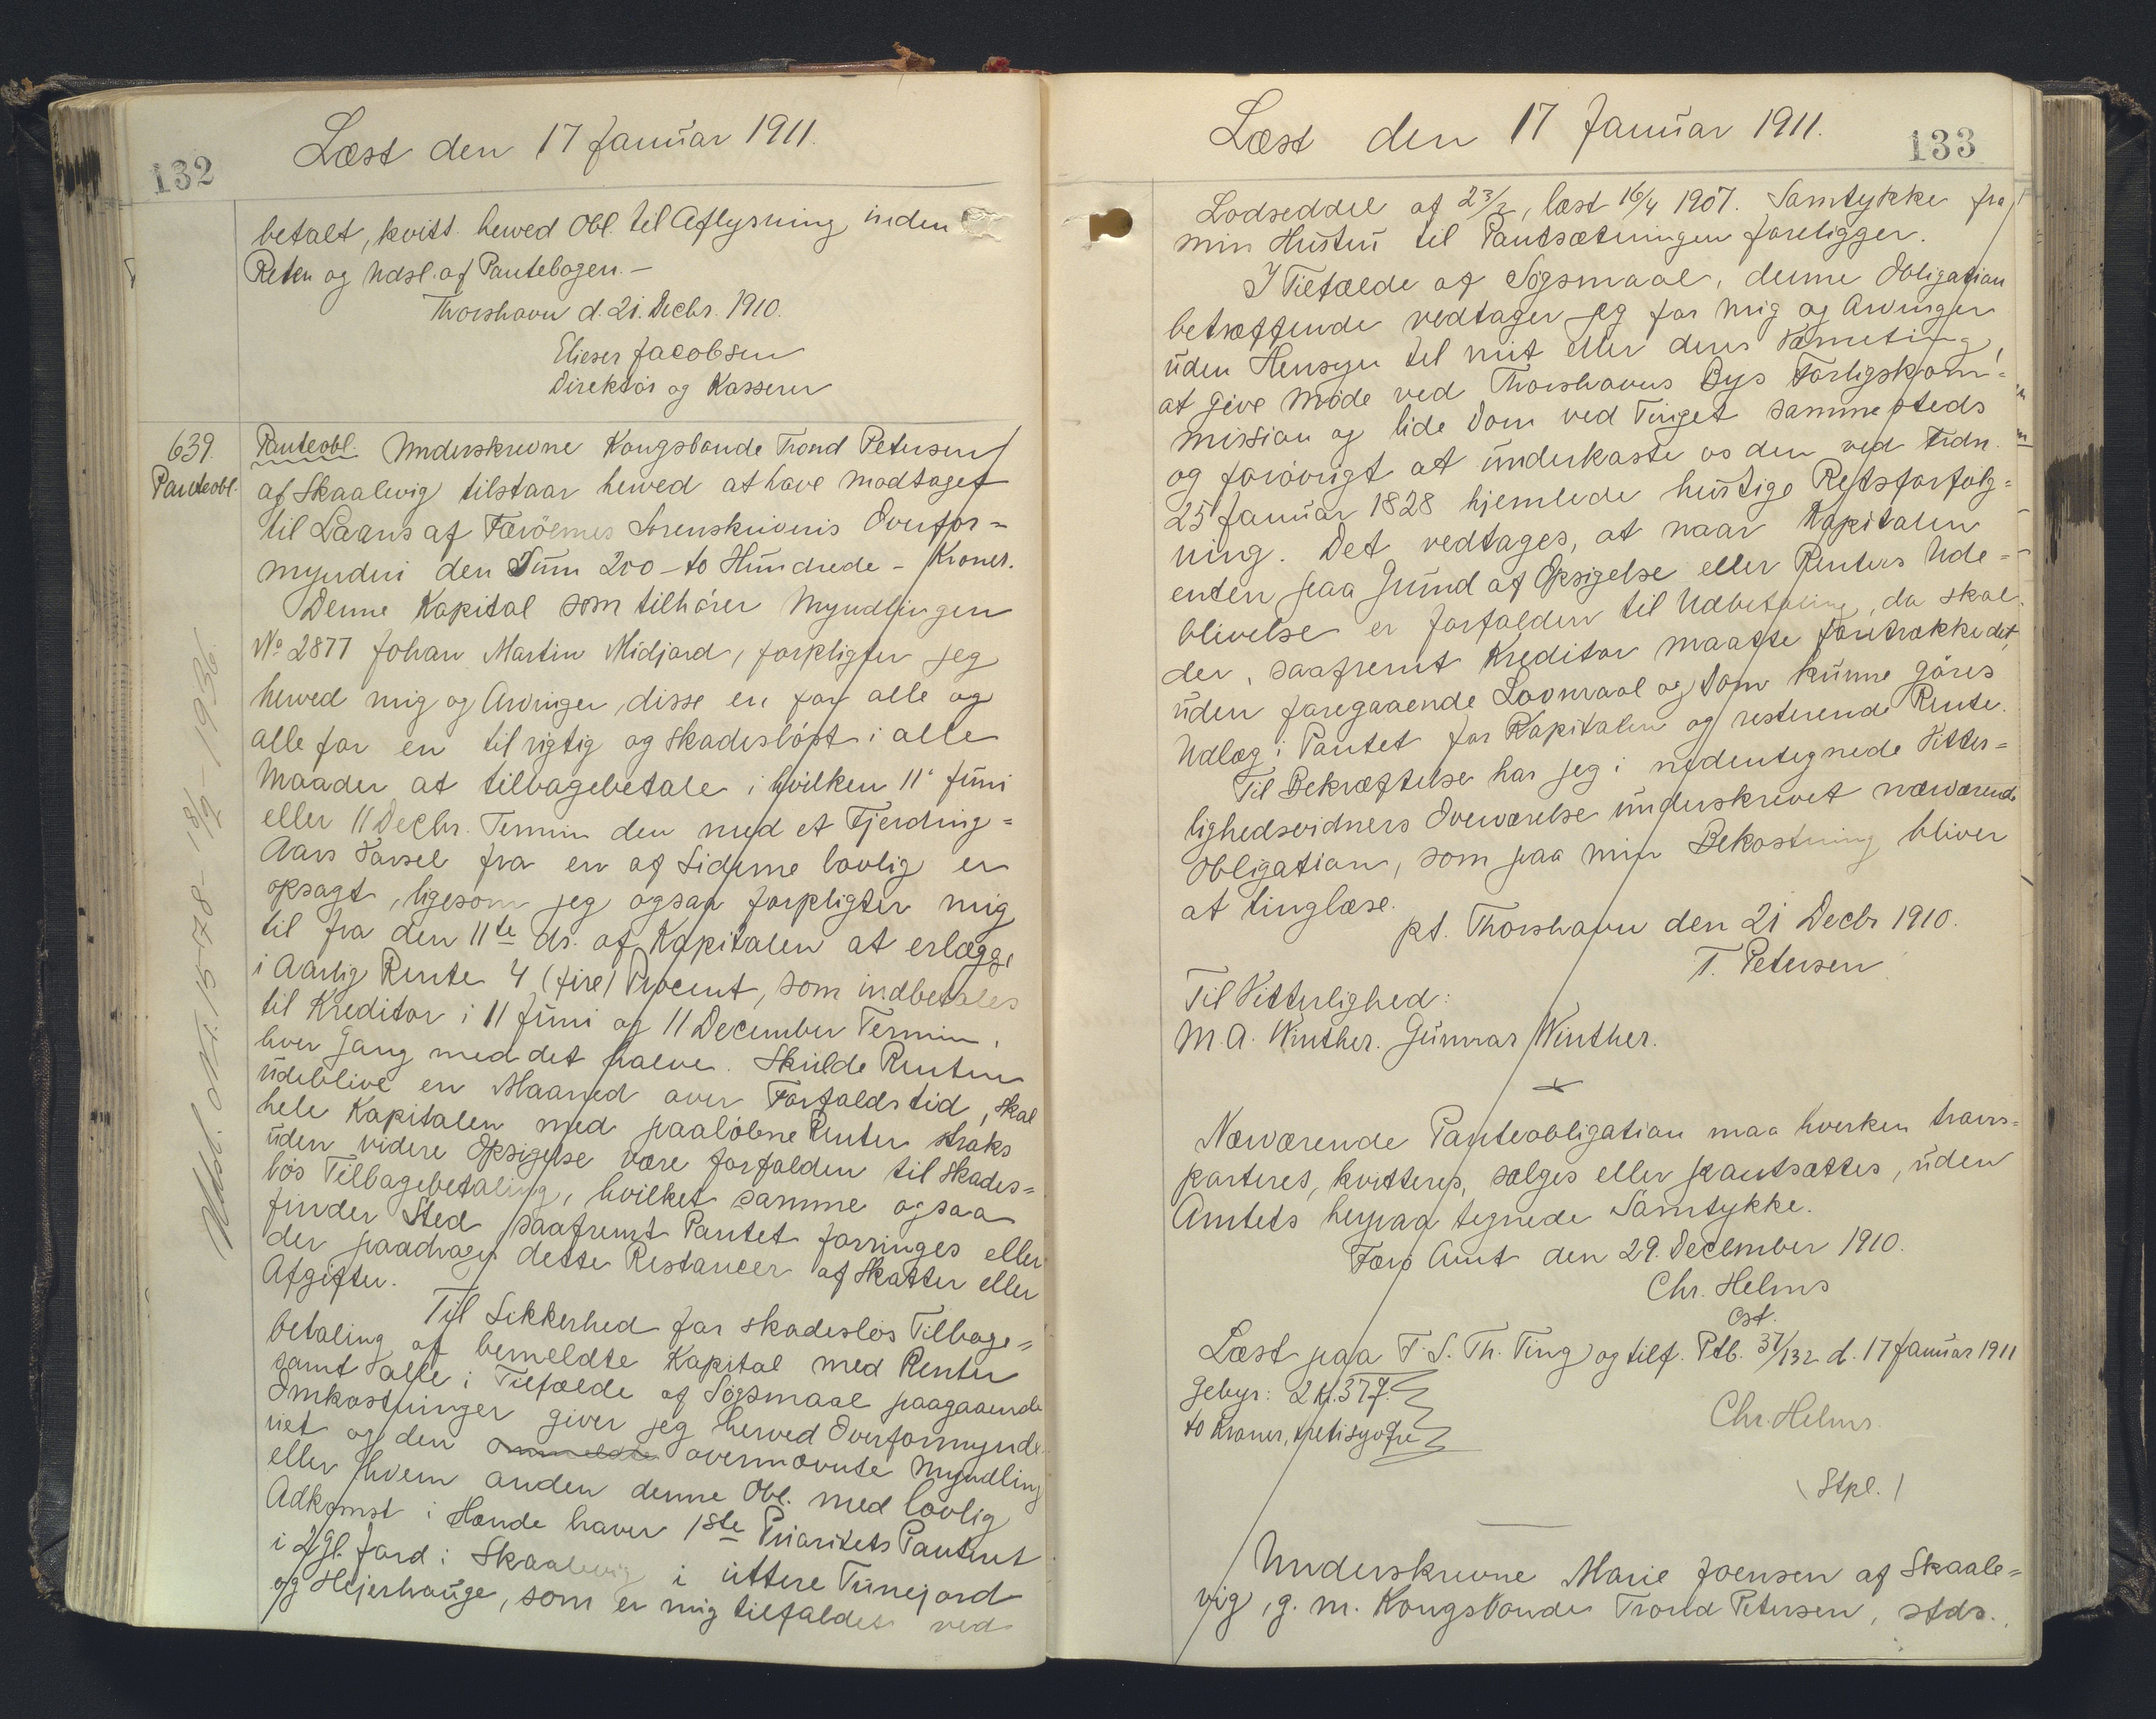 132
Læst den 17 Januar 1911.
betalt, kvitt. herved Obl. til Aflysning inden
Retten og Udsl. af Pantebogen. —
Thorshavn d. 21. Decbr. 1910.
Elieser Jacobsen
Direktør og Kasserer
639.
Panteobl.
Panteobl. Underskrevne Kongsbonde Trond Petersen
af Skaalevig tilstaar herved at have modtaget
til Laans af Færöernes Sorenskriveris Overfor=
mynderi den Sum 200 - to Hundrede - Kroner.
Denne Kapital som tilhører Myndlingen
No 2877 Johan Martin Midjord, forpligter jeg
herved mig og Arvinger, disse en for alle og
alle for en til rigtig og skadesløst i alle
Maader at tilbagebetale i hvilken 11' Juni
eller 11 Decbr. Termin den med et Fjerding=
Aars Varsel fra en af Siderne lovlig er
opsagt, ligesom jeg ogsaa forpligter mig
til fra den 11te ds. af Kapitalen at erlægge
i Aarlig Rente 4 (fire) Procent, som indbetales
til Kreditor i 11 Juni og 11 December Termin,
hver Gang med det halve. Skulde Renten
udeblive en Maaned over Forfaldstid, skal
hele Kapitalen med paaløbne Renter straks
uden videre Opsigelse være forfalden til skades=
løs Tilbagebetaling, hvilket samme ogsaa
finder Sted saafremt Pantet forringes eller
der paadrages dette Restancer af Skatter eller
Afgifter.
Til Sikkerhed for skadesløs Tilbage=
betaling af bemeldte Kapital med Renter
samt alle i Tilfælde af Søgsmaal paagaaende
Omkostninger giver jeg herved Overformynde
riet og den ovennævnte Myndling
eller hvem anden denne Obl. med lovlig
Adkomst i Hænde haver 1ste Prioritets Panteret
i 2 Gl. Jord i Skaalevig i uttere Tunejord
og Hejerhauge, som er mig tilfaldet ved
Udsl. Nr. 1578 - 18/9 - 1936.
133
Læst den 17 Januar 1911.
Lodseddel af 23/2, læst 16/4 1907. Samtykke fra
min Hustru til Pantsætningen foreligger.
I Tilfælde af Søgsmaal, denne Obligation
betræffende vedtager jeg for mig og Arvinger
uden Hensyn til mit eller deres Værneting,
at give Møde ved Thorshavns Bys Forligskom=
mission og lide Dom ved Tinget sammesteds
og forøvrigt at underkaste os den ved Frdn.
25 Januar 1828 hjemlede hurtige Retsforfølg=
ning. Det vedtages, at naar Kapitalen
enten paa Grund af Opsigelse eller Renters Ude=
blivelse er forfalden til Udbetaling, da skal
der, saafremt Kreditor maatte foretrække det,
uden foregaaende Lovmaal og Dom kunne göres
Udlæg i Pantet for Kapitalen og resterende Rente.
Til Bekræftelse har jeg i nedentegnede Vitter=
lighedsvidners Overværelse underskrevet nærværende
Obligation, som paa min Bekostning bliver
at tinglæse.
pt. Thorshavn den 21 Decbr 1910.
T. Petersen
Til Vitterlighed:
M. A. Winther. Gunnar Winther.
Nærværende Panteobligation maa hverken trans=
porteres, kvitteres, sælges eller pantsættes, uden
Amtets herpaa tegnede Samtykke.
Færø Amt den 29. December 1910.
Chr. Helms
cst.
Læst paa F. S. Th. Ting og tilf. Ptb. 37/132 d. 17 Januar 1911
Gebyr: 2 Kr. 37 Ø.
to Kroner, treti syv Øre
Chr. Helms.
(Stpl.)
Underskrevne Marie Joensen af Skaale=
vig, g. m. Kongsbonde Trond Petersen, stds.,